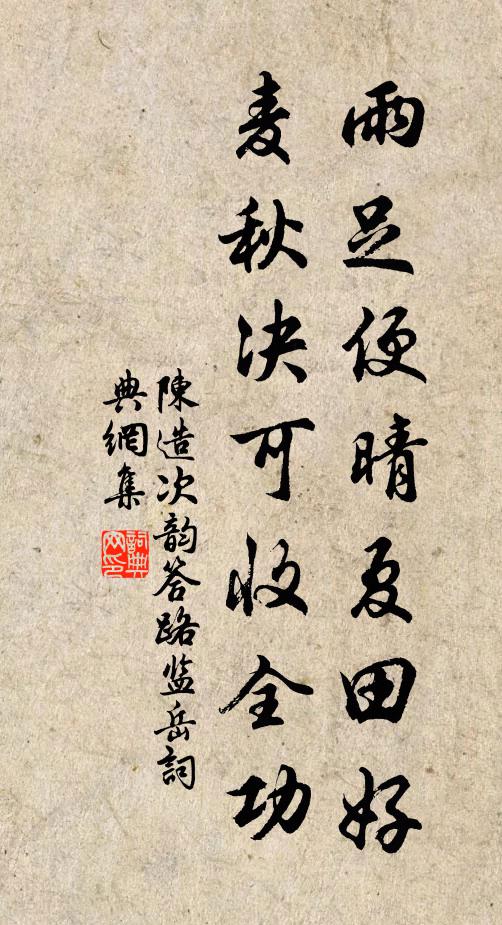 雨足便晴夏田好
麦秋决可收全功
陳造次韵答路监岳詞
典網集
詞典网印